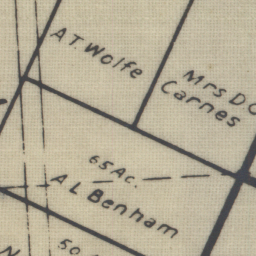 A T. Wolfe
Mrs D C
Carnes
65 Ac.
A L Benham
50
N